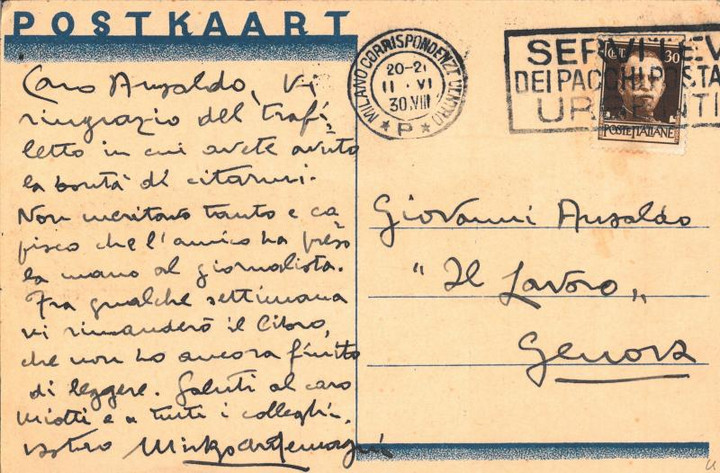 POSTKAART
Caro Ansaldo, vi
ringrazio del trafi-
letto in cui avete avuto
la bontà di citarmi.
Non meritavo tanto e ca
pisco che l'amico ha preso
la mano al giornalista.
Fra qualche settimana
vi rimanderò il libro,
che non ho ancora finito
di leggere. Saluti al caro
Miotti e a tutti i colleghi.
vostro
MILANO CORRISPONDENZE CENTRO
20-21
11 · VI
30.VIII
* P *
SERV
DEI PACCHI POSTA
UR ENTI
30
POSTE ITALIANE
Giovanni Ansaldo
"Il Lavoro"
Genova